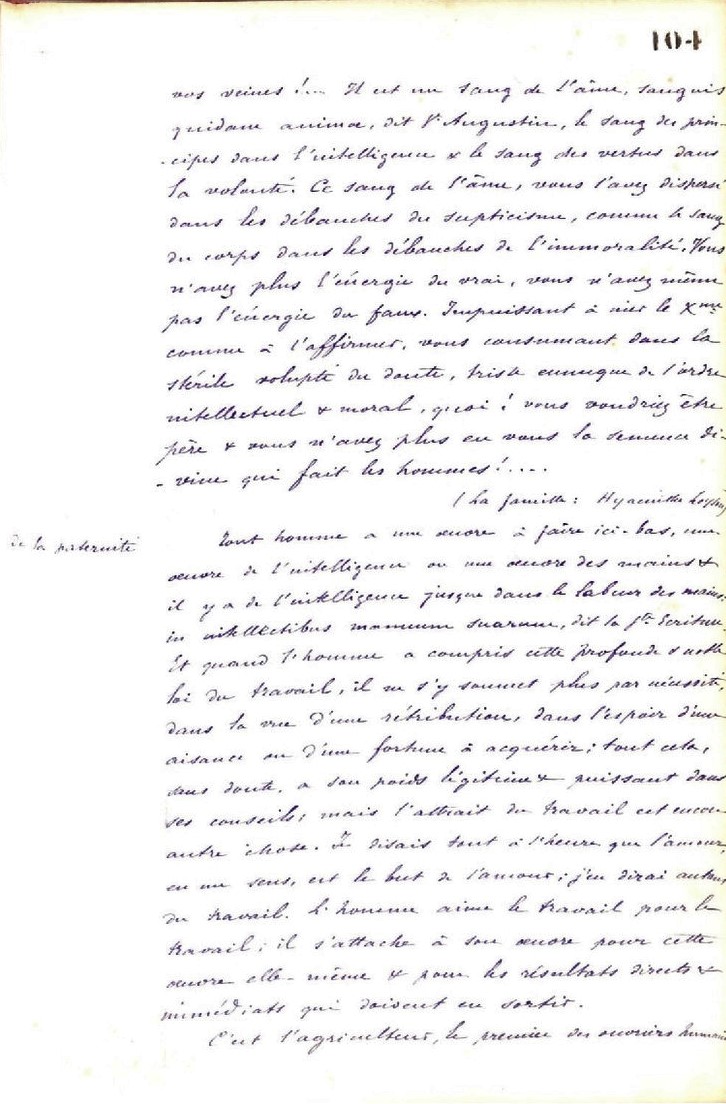 104
vos veines !... Il est un sang de l'âme, sanguis
quidam animæ, dit St Augustin, le sang des prin-
-cipes dans l'intelligence & le sang des vertus dans
la volonté. Ce sang de l'âme, vous l'avez dispersé
dans les débauches du scepticisme, comme le sang
du corps dans les débauches de l'immoralité. Vous
n'avez plus l'énergie du vrai, vous n'avez même
pas l'énergie du faux. Impuissant à nier le Xme
comme à l'affirmer, vous consumant dans la
stérile volupté du doute, triste eunuque de l'ordre
intellectuel & moral, quoi ! vous voudriez être
père & vous n'avez plus en vous la semence di-
-vine qui fait les hommes !....
(La famille : Hyacinthe Loyson
de la paternité
Tout homme a une œuvre à faire ici-bas, une
œuvre de l'intelligence ou une œuvre des mains &
il y a de l'intelligence jusque dans le labeur des mains:
in intellectibus manuum suarum, dit la Ste Ecriture.
Et quand l'homme a compris cette profonde & noble
loi du travail, il ne s'y soumet plus par nécessité,
dans la vue d'une rétribution, dans l'espoir d'une
aisance ou d'une fortune à acquérir; tout cela,
sans doute, a son poids légitime & puissant dans
ses conseils; mais l'attrait du travail est encore
autre chose. Je disais tout à l'heure que l'amour,
en un sens, est le but de l'amour; j'en dirai autant
du travail. L'homme aime le travail pour le
travail; il s'attache à son œuvre pour cette
œuvre elle-même & pour les résultats directs &
immédiats qui doivent en sortir.
C'est l'agriculteur, le premier des ouvriers humains